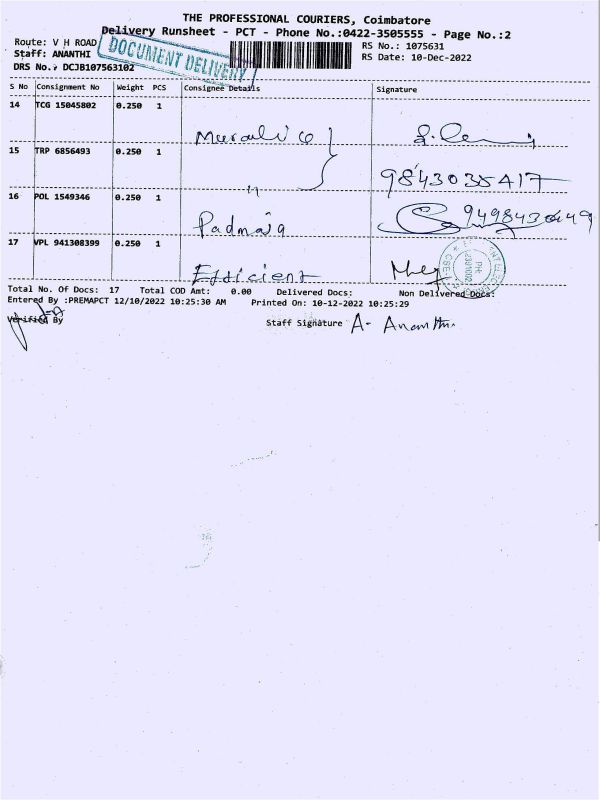 THE PROFESSIONAL COURIERS, Coimbatore
Delivery Runsheet - PCT - Phone No.:0422-3505555 - Page No.:2
Route: V H ROAD
DOCUMENT DELIVERY
RS No.: 1075631
Staff: ANANTHI
RS Date: 10-Dec-2022
DRS No.: DCJB107563102
S No Consignment No Weight PCS Consignee Details Signature
14 TCG 15045802 0.250 1
15 TRP 6856493 0.250 1 9843035417
16 POL 1549346 0.250 1 Padmaja 9498430449
17 VPL 941308399 0.250 1 Efficient
Total No. Of Docs: 17 Total COD Amt: 0.00 Delivered Docs: Non Delivered Docs:
Entered By :PREMAPCT 12/10/2022 10:25:30 AM Printed On: 10-12-2022 10:25:29
Verified By
Staff Signature A- Ananthi